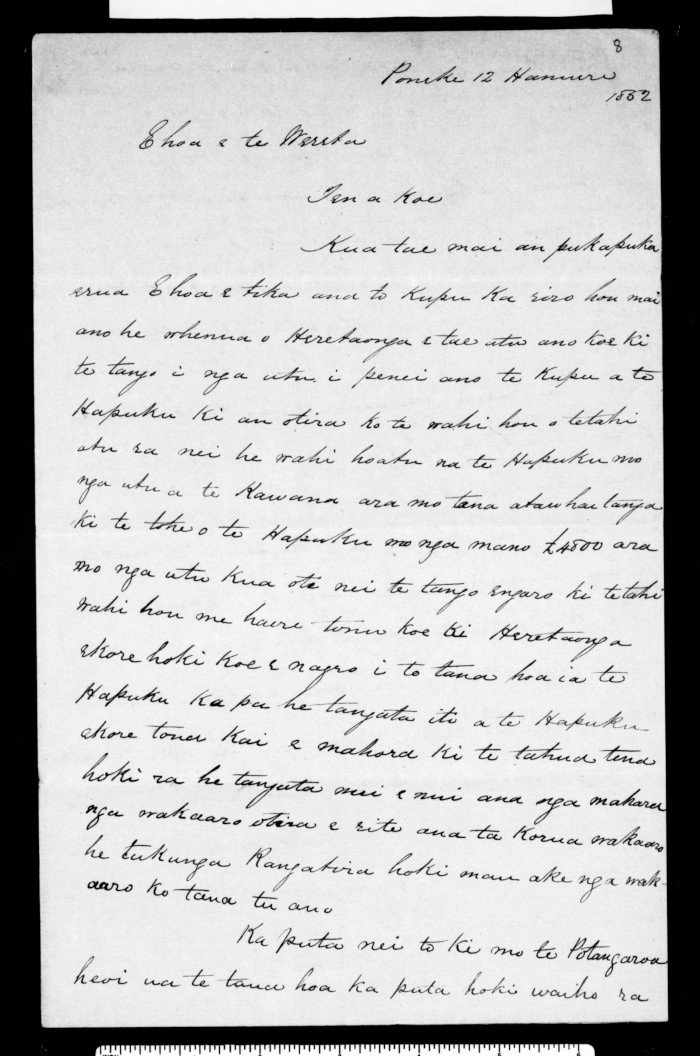 8
Poneke 12 Hanuere
1862
E hoa e te Wereta
Tena koe
Kua tae mai au pukapuka
erua E hoa e tika ana to kupu ka riro hou mai
ano he whenua o Heretaonga e tae atu ano koe ki
te tango i nga utu. i penei ano te kupu a te
Hapuku ki au otira ko te wahi hou o tetahi
atu ra nei he wahi hoatu na te Hapuku mo
nga utu a te Kawana ara mo tana atawhaitanga
ki te tohe o te Hapuku mo nga mano £4800 ara
mo nga utu kua oti nei te tango engaro ki tetahi
wahi hou me haere tonu koe ki Heretaonga
ekore hoki koe e nagro i to taua hoa ia te
Hapuku ka pa he tangata iti a te Hapuku
ekore tona kai e mahora ki te tahua tena
hoki ra he tangata nui e nui ana nga mahara
nga wakaaro otira e rite ana ta korua wakaaro
he tukunga Rangatira hoki mau ake nga wak-
aaro ko tana tu ano
Ka puta nei to ki mo te Potangaroa
heoi na te taua hoa ka puta hoki waiho ra